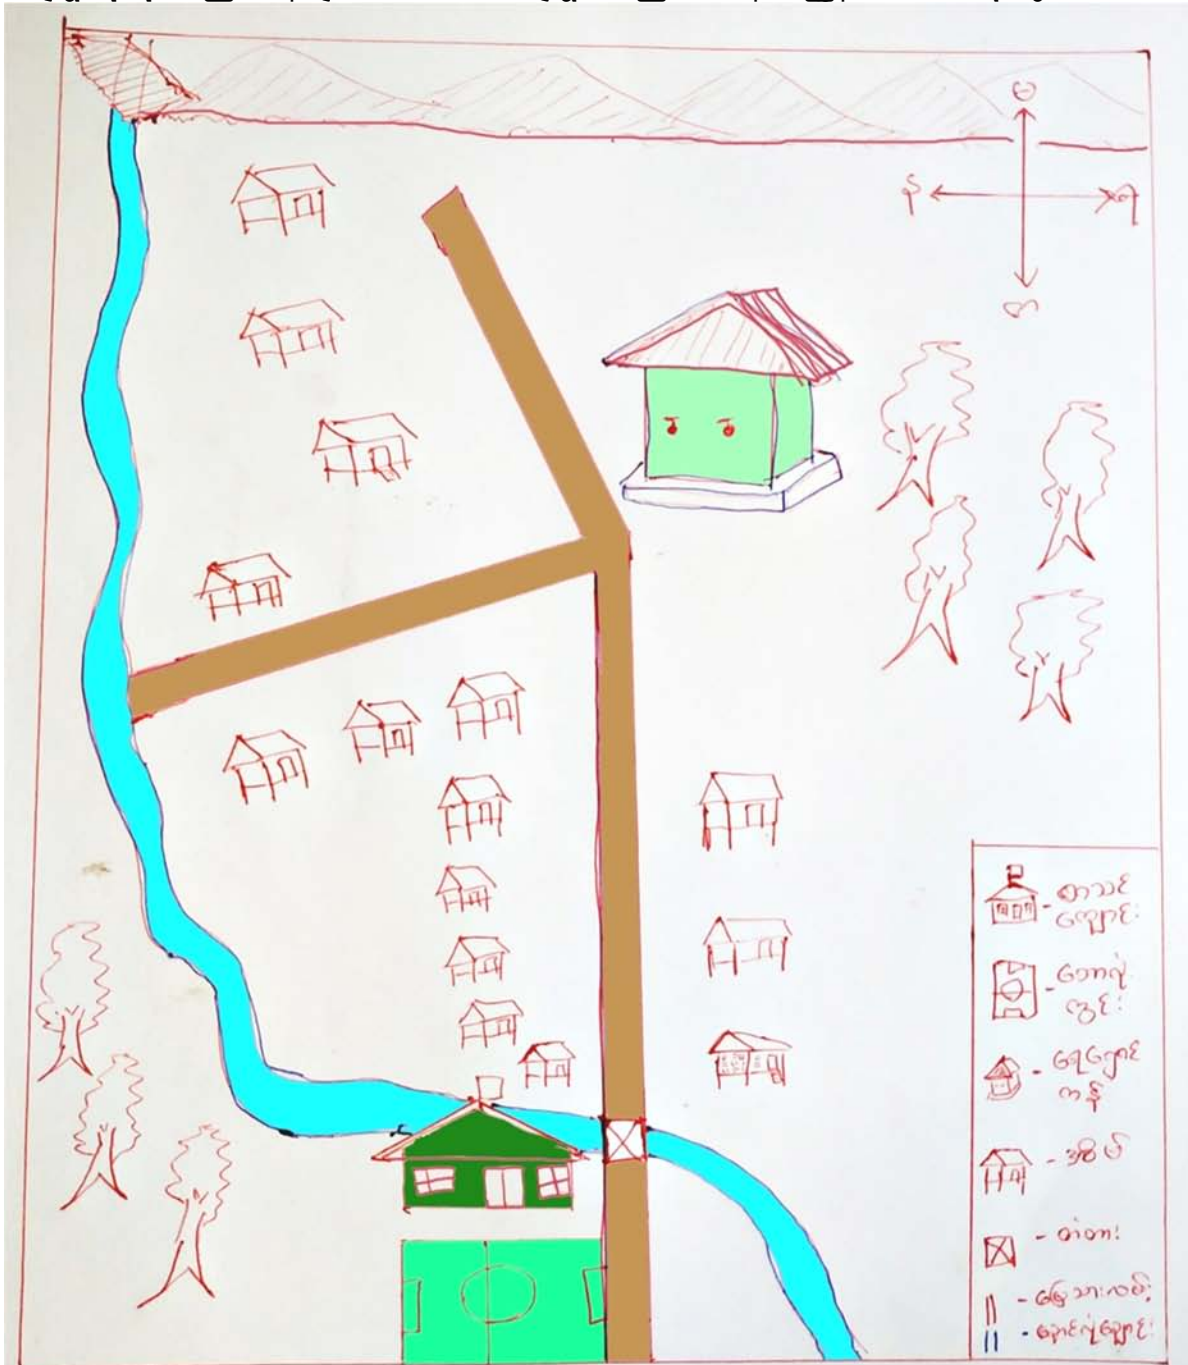 - စာသင်
ကျောင်း
- ဘောလုံး
ကွင်း
- ရေလှောင်
ကန်
- အိမ်
- တံတား
- မြေသားလမ်း
- နောင်လုံချောင်း